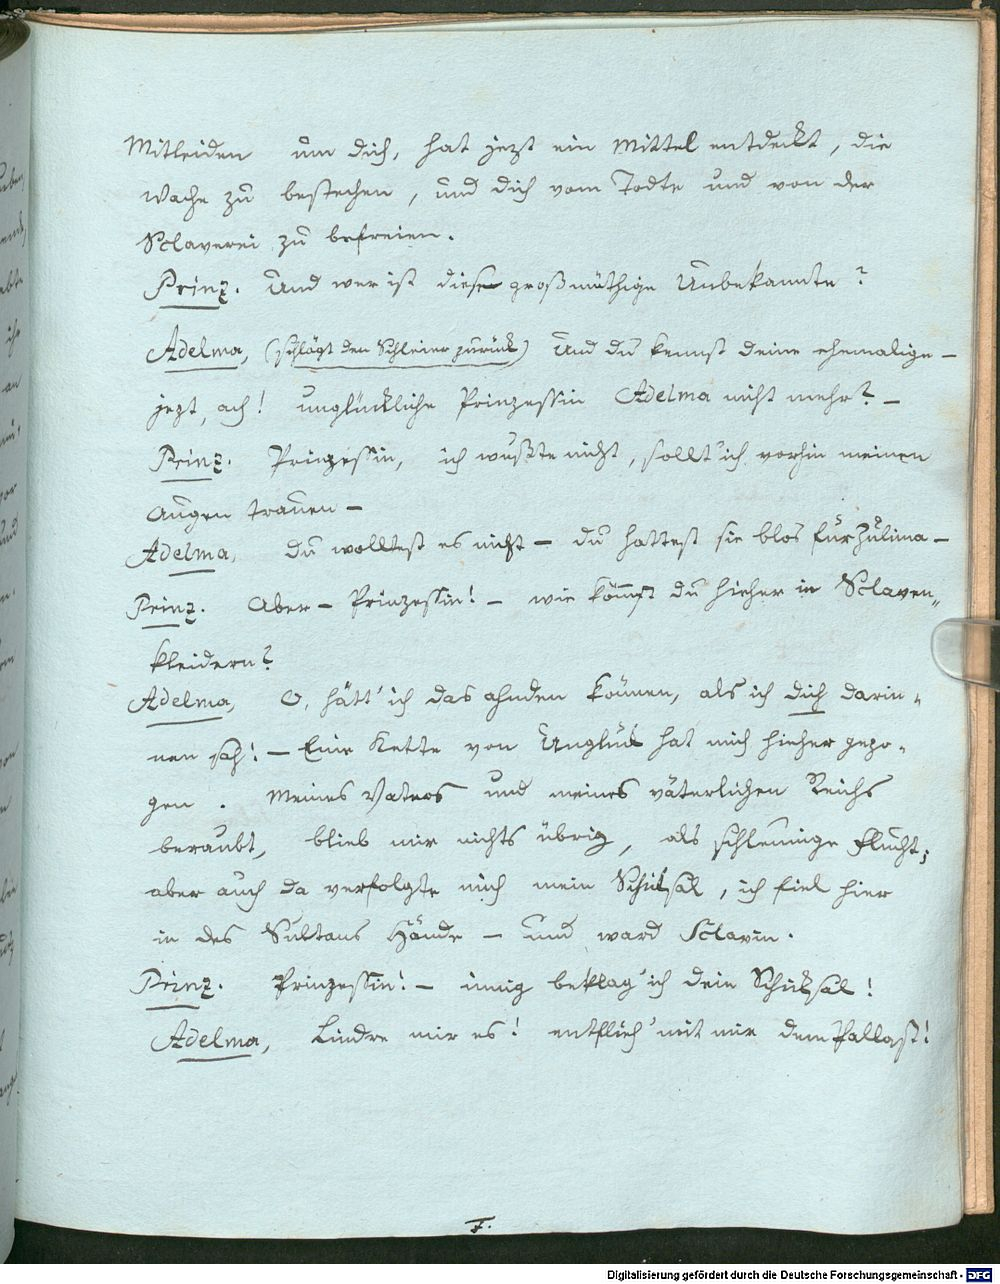 Mitleiden um dich, hat jezt ein Mittel entdeckt, die
Wache zu bestechen, und dich vom Todte und von der
Sclaverei zu befreien.
Prinz. Und wer ist diese großmüthige Unbekannte?
Adelma, (schlägt den Schleier zurück) Und du kennst deine ehemalige –
jezt, ach! unglückliche Prinzessin Adelma nicht mehr? –
Prinz. Prinzessin, ich wußte nicht, sollt' ich vorhin meinen
Augen trauen –
Adelma, du wolltest es nicht – du hattest sie blos für Zulima –
Prinz. Aber – Prinzessin! – wie kömmst du hieher in Sclaven„
kleidern?
Adelma, O, hätt' ich das ahnden können, als ich dich darin„
nen sah! – Eine Kette von Unglück hat mich hieher gezo„
gen. Meines Vaters und meines väterlichen Reichs
beraubt, blieb mir nichts übrig, als schleunige Flucht;
aber auch da verfolgte mich mein Schiksal, ich fiel hier
in des Sultans Hände – und ward Sclavin.
Prinz. Prinzessin! – innig beklag' ich dein Schiksal!
Adelma, Lindre mir es! entflieh' mit mir dem Pallast!
F.
Digitalisierung gefördert durch die Deutsche Forschungsgemeinschaft - DFG